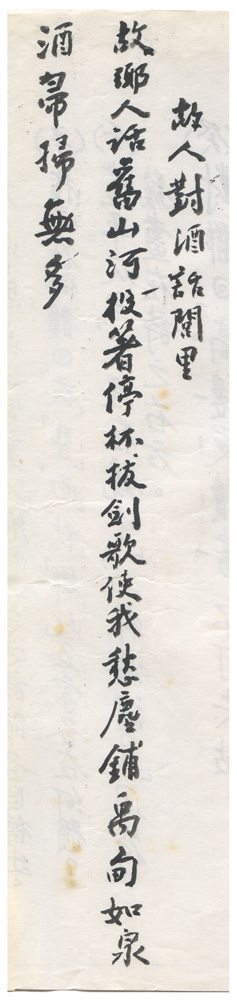 故人對酒話閭里
故鄉人話舊山河投箸停杯拔劍歌使我愁塵鋪禹甸如泉
酒帚掃無多